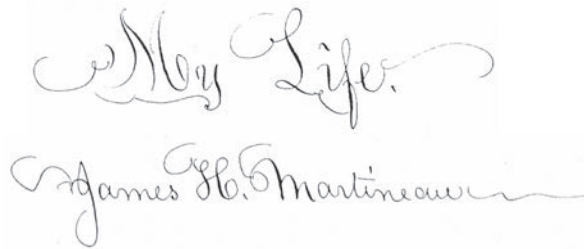 My Life.
James H. Martineau